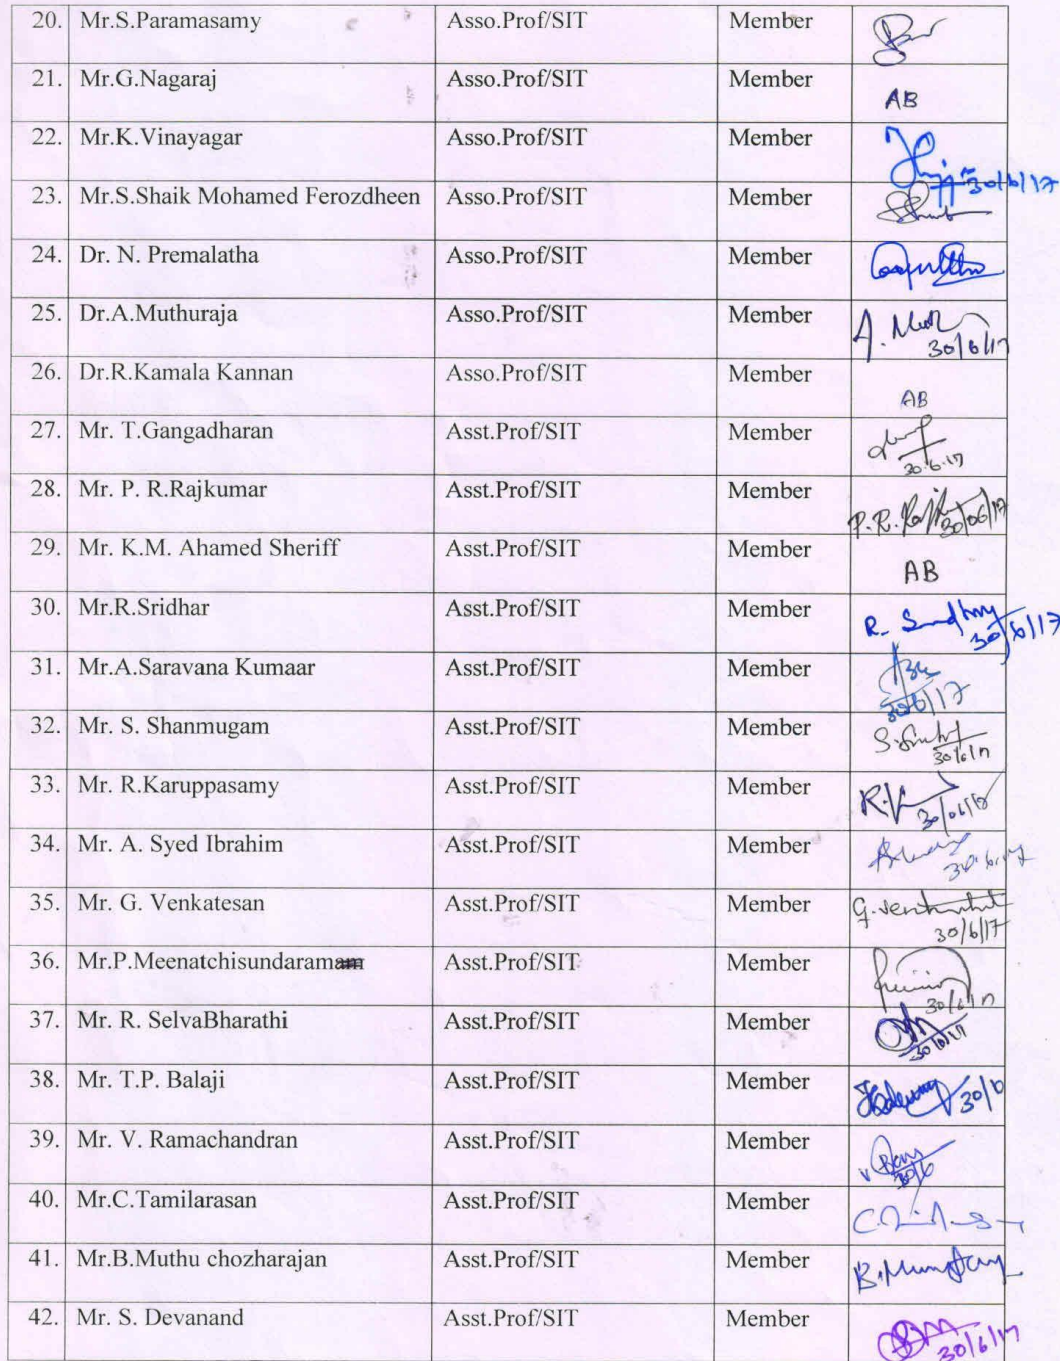 20. Mr.S.Paramasamy Asso.Prof/SIT Member
21. Mr.G.Nagaraj Asso.Prof/SIT Member AB
22. Mr.K.Vinayagar Asso.Prof/SIT Member 30/6/17
23. Mr.S.Shaik Mohamed Ferozdheen Asso.Prof/SIT Member
24. Dr. N. Premalatha Asso.Prof/SIT Member
25. Dr.A.Muthuraja Asso.Prof/SIT Member 30/6/17
26. Dr.R.Kamala Kannan Asso.Prof/SIT Member AB
27. Mr. T.Gangadharan Asst.Prof/SIT Member 30.6.17
28. Mr. P. R.Rajkumar Asst.Prof/SIT Member 30/06/17
29. Mr. K.M. Ahamed Sheriff Asst.Prof/SIT Member AB
30. Mr.R.Sridhar Asst.Prof/SIT Member 30/6/17
31. Mr.A.Saravana Kumaar Asst.Prof/SIT Member 30/6/17
32. Mr. S. Shanmugam Asst.Prof/SIT Member 30/6/17
33. Mr. R.Karuppasamy Asst.Prof/SIT Member
34. Mr. A. Syed Ibrahim Asst.Prof/SIT Member 30.6.17
35. Mr. G. Venkatesan Asst.Prof/SIT Member 30/6/17
36. Mr.P.Meenatchisundaram Asst.Prof/SIT Member 30/6/17
37. Mr. R. SelvaBharathi Asst.Prof/SIT Member
38. Mr. T.P. Balaji Asst.Prof/SIT Member 30/6
39. Mr. V. Ramachandran Asst.Prof/SIT Member 30/6
40. Mr.C.Tamilarasan Asst.Prof/SIT Member
41. Mr.B.Muthu chozharajan Asst.Prof/SIT Member
42. Mr. S. Devanand Asst.Prof/SIT Member 30/6/17